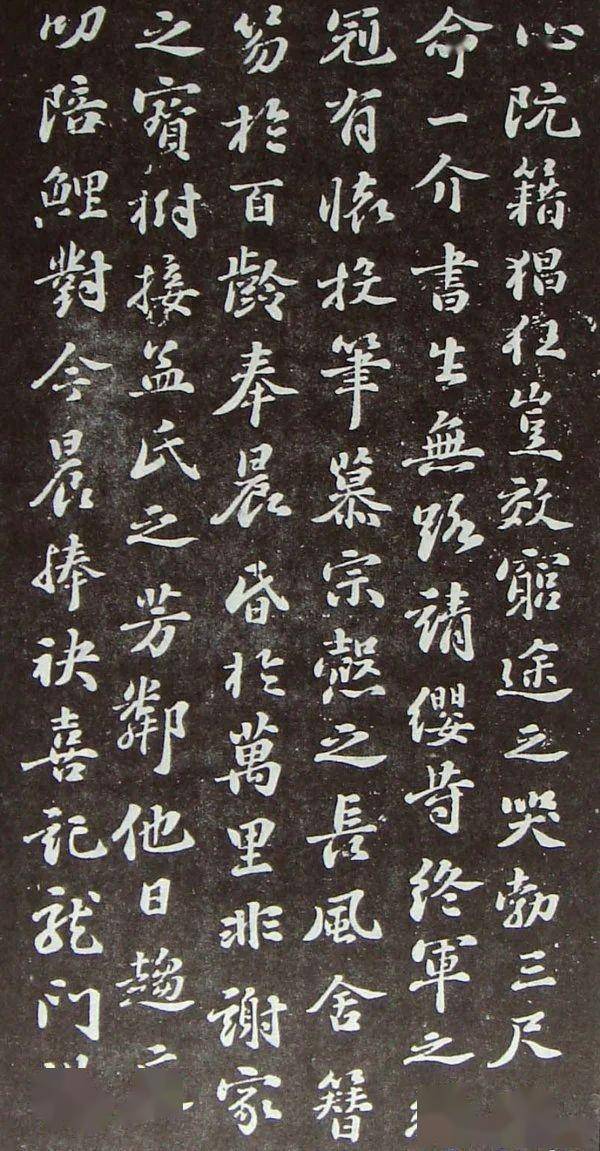 心阮籍猖狂豈效窮途之哭勃三尺
命一介書生無路請纓等終軍之
冠有懷投筆慕宗愨之長風舍簪
笏於百齡奉晨昏於萬里非謝家
之寶樹接孟氏之芳鄰他日趨
叨陪鯉對今晨捧袂喜託龍門